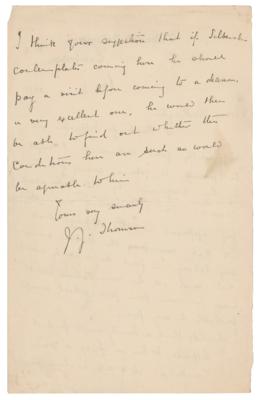 I think your suggestion that if Silberstein
contemplates coming here he should
pay a visit before coming to a decision
is a very excellent one, he would then
be able to find out whether the
conditions here are such as would
be agreeable to him
Yours very sincerely
J.J. Thomson